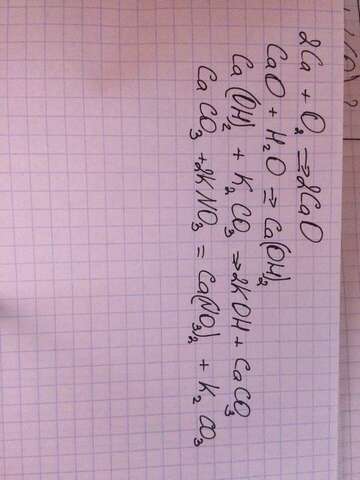 2Ca + O₂ ⇒ 2CaO
CaO + H₂O ⇒ Ca(OH)₂
Ca(OH)₂ + K₂CO₃ ⇒ 2KOH + CaCO₃
CaCO₃ + 2KNO₃ = Ca(NO₃)₂ + K₂CO₃